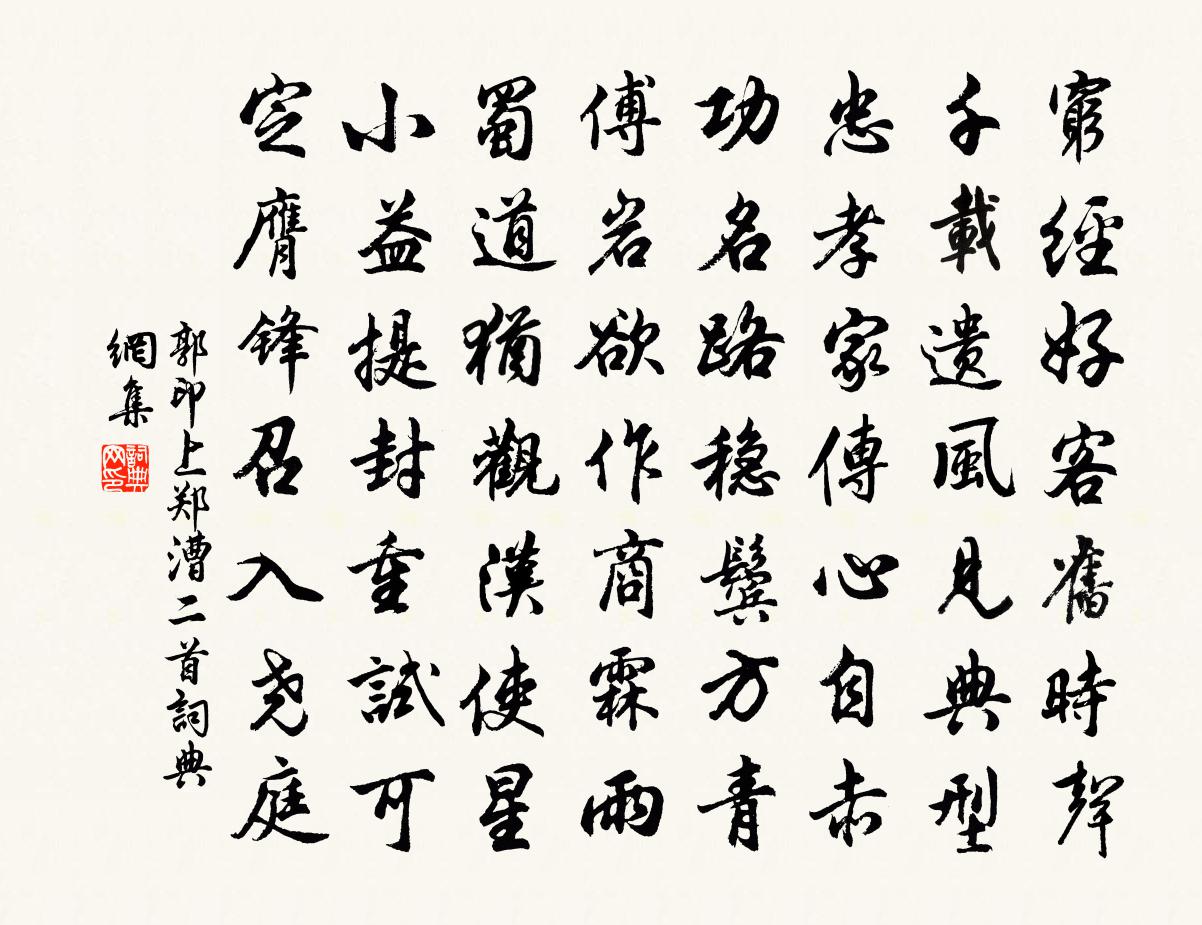 窮經好客舊時聲
千載遺風見典型
忠孝家傳心自赤
功名路穩鬢方青
傅岩欲作商霖雨
蜀道猶觀漢使星
小益提封重試可
定膺鋒召入尧庭
郭印上郑漕二首詞典
網集
詞典网印